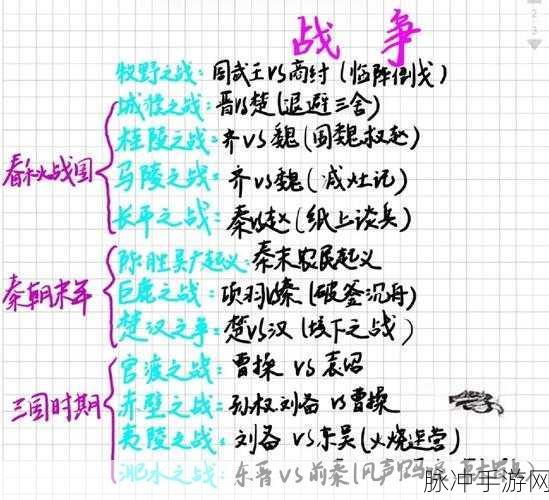 战争
牧野之战：周武王VS商纣（临阵倒戈）
春秋战国
城濮之战：晋VS楚（退避三舍）
桂陵之战：齐VS魏（围魏救赵）
马陵之战：齐VS魏（减灶记）
长平之战：秦VS赵（纸上谈兵）
秦朝末年
陈胜吴广起义：秦末农民起义
巨鹿之战：项羽VS秦（破釜沉舟）
楚汉之争：楚VS汉（垓下之战）
三国时期
官渡之战：曹操 VS 袁绍
赤壁之战：孙权.刘备 VS 曹操
夷陵之战：刘备 VS 东吴（火烧连营）
淝水之战：东晋VS前秦（风声
脉冲手游网